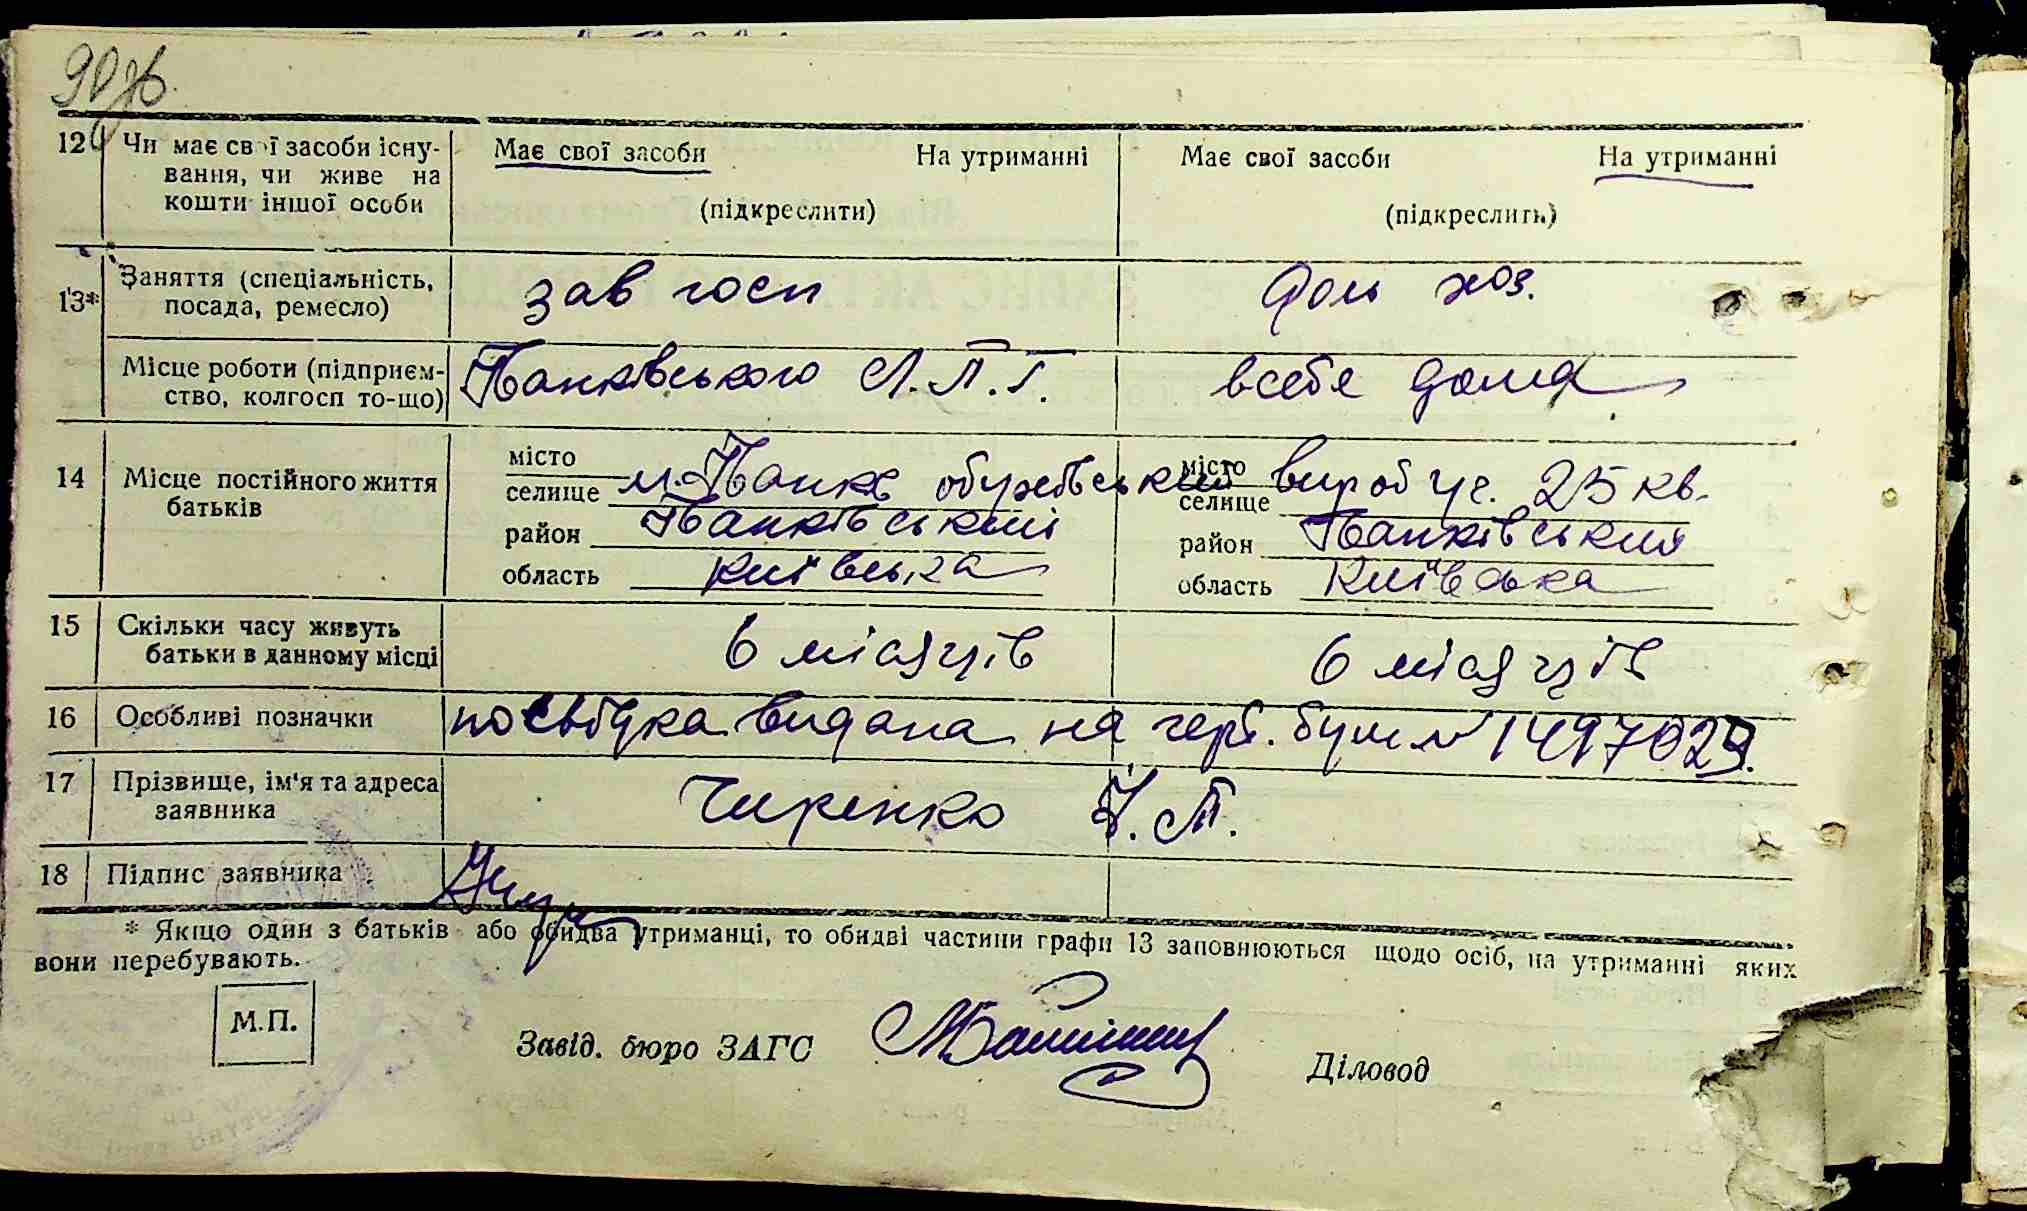 90
12 Чи має свої засоби існу- Має свої засоби На утриманні Має свої засоби На утриманні
вання, чи живе на
кошти іншої особи (підкреслити) (підкреслить)
13* Заняття (спеціальність, зав госп Дом хоз.
посада, ремесло)
Місце роботи (підприєм- Іванківського Л.П.Г. в себе дома
ство, колгосп то-що)
місто місто
14 Місце постійного життя селище м. Іванків вироб уч. 25 кв. селище
батьків район Іванківський район Іванківський
область Київська область Київська
15 Скільки часу живуть 6 місяців 6 місяців
батьки в данному місці
16 Особливі позначки посвідка видана на герб. бум № 1497029.
17 Прізвище, ім'я та адреса Чиренко
заявника
18 Підпис заявника
* Якщо один з батьків або обидва утриманці, то обидві частини графи 13 заповнюються щодо осіб, на утриманні яких
вони перебувають.
М.П.
Завід. бюро ЗАГС Діловод